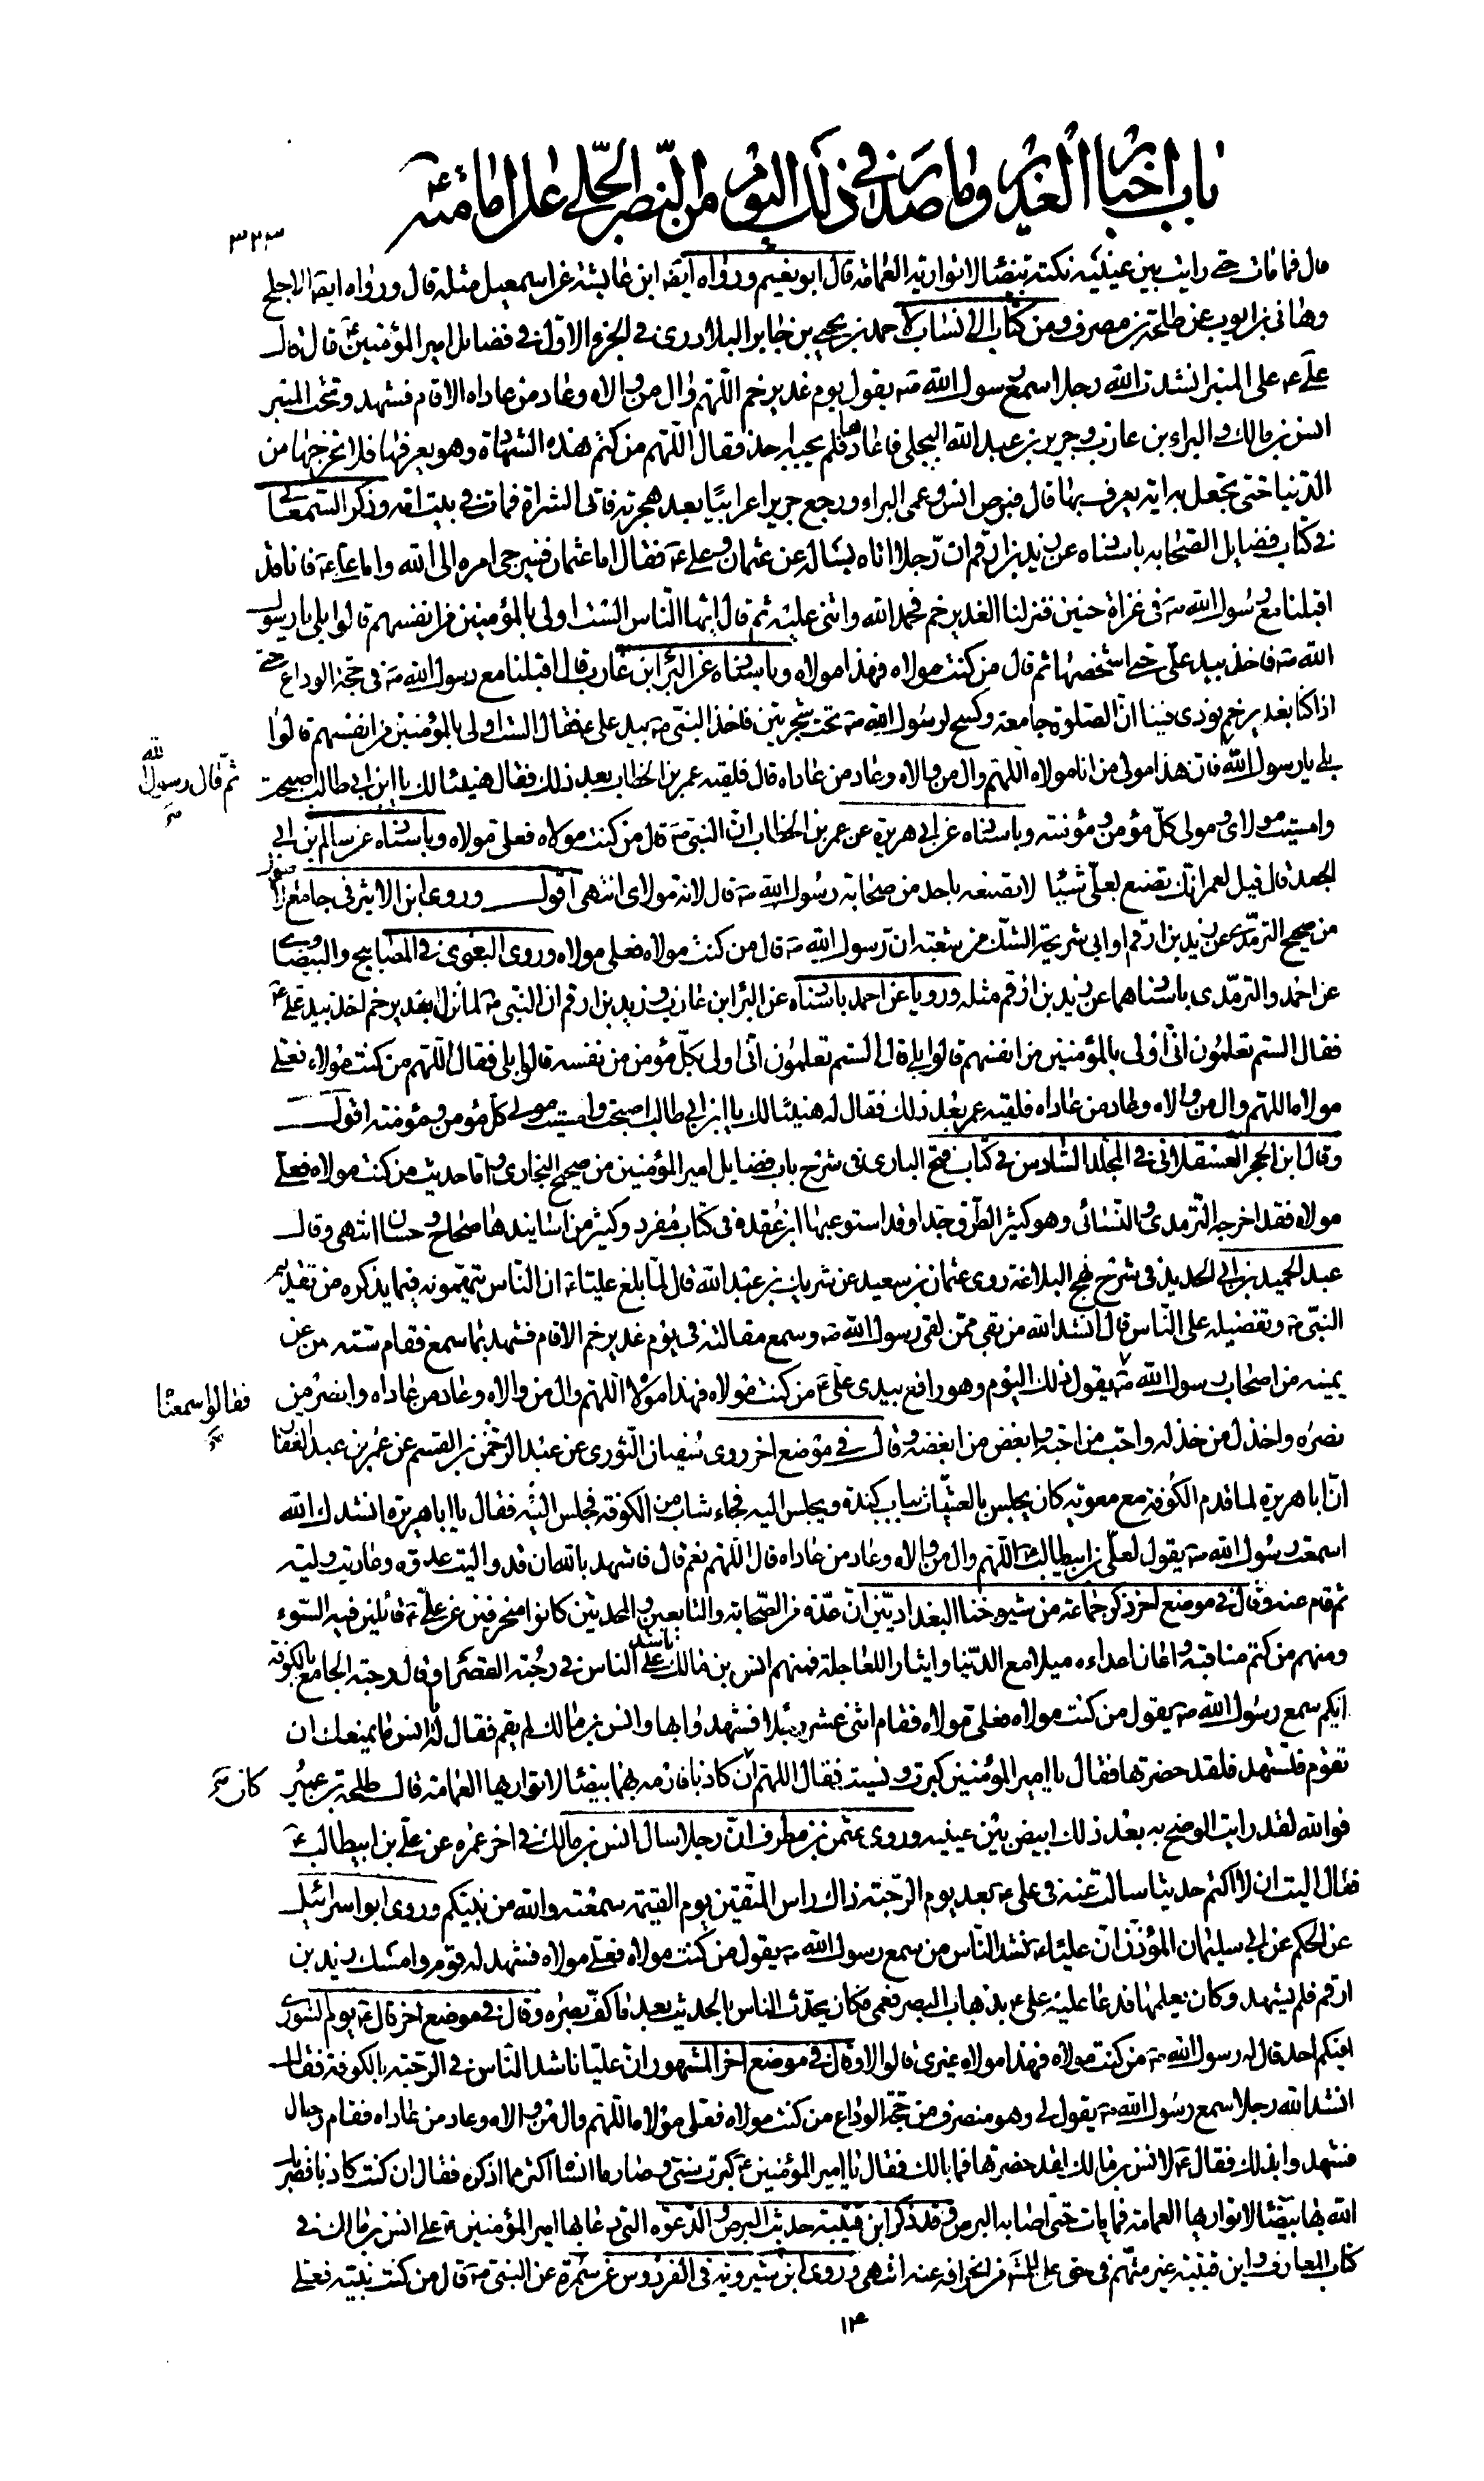 باب اخبار الغدير وما صدر في ذلك اليوم من النص الجلي على امامته ع
٣٢٣
قال فما مات حتى رايت بين عينيه نكتة بيضاء لا تواريه العمامة قال ابو نعيم ورواه ايضا ابن عايشة عن اسمعيل مثله قال ورواه ايضا الاجلح
وهاني بن ايوب عن طلحة بن مصرف ومن كتاب الانساب لاحمد بن يحيى بن جابر البلادري في الجزء الاول في فضايل امير المؤمنين ع قال قال
علي ع على المنبر انشد الله رجلا سمع رسول الله ص يقول يوم غدير خم اللهم وال من والاه وعاد من عاداه الا قام فشهد وتحت المنبر
انس بن مالك والبراء بن عازب وجرير بن عبد الله البجلي فاعادها فلم يجبه احد فقال اللهم من كتم هذه الشهادة وهو يعرفها فلا تخرجها من
الدنيا حتى تجعل به اية يعرف بها قال فبرص انس وعمي البراء ورجع جرير اعرابيا بعد هجرته فاتى الشراة فمات في بيت امه وذكر السمعاني
في كتاب فضايل الصحابة باسناده عن زيد بن ارقم ان رجلا اتاه يساله عن عثمان وعلي ع فقال اما عثمان فنيرجى امره الى الله واما علي ع فانا قد
اقبلنا مع رسول الله ص في غزاة حنين فنزلنا الغدير خم فحمد الله واثنى عليه ثم قال ايها الناس الست اولى بالمؤمنين من انفسهم قالوا بلى يا رسول
الله ص فاخذ بيد علي حتى اشخصها ثم قال من كنت مولاه فهذا مولاه وباسناده عن البراء ابن عازب قال اقبلنا مع رسول الله ص في حجة الوداع حتى
اذا كنا بغدير خم نودي فينا ان الصلوة جامعة وكسح لرسول الله ص تحت شجرتين فاخذ النبي ص بيد علي ع فقال الست اولى بالمؤمنين من انفسهم قالوا
بلى يا رسول الله فان هذا مولى من انا مولاه اللهم وال من والاه وعاد من عاداه قال فلقيه عمر بن الخطاب بعد ذلك فقال هنيئا لك يا ابن ابي طالب اصبحت
ثم قال رسول الله ص
وامسيت مولاي ومولى كل مؤمن ومؤمنة وباسناده عن ابي هريرة عن عمر بن الخطاب ان النبي ص قال من كنت مولاه فعلي مولاه وباسناده عن سالم بن ابي
الجعد قال قيل لعمر انك تصنع لعلي شيئا لا تصنعه باحد من صحابة رسول الله ص قال لانه مولاي انتهى اقول وروى ابن الاثير في جامع الاصول
من صحيح الترمذي عن زيد بن ارقم او ابي شريحة الشك من شعبة ان رسول الله ص قال من كنت مولاه فعلي مولاه وروى البغوي في المصابيح والبيضاوي
عن احمد والترمذي باسنادهما عن زيد بن ارقم مثله ورويا عن احمد باسناده عن البراء ابن عازب وزيد بن ارقم ان النبي ص لما نزل بغدير خم اخذ بيد علي ع
فقال الستم تعلمون اني اولى بالمؤمنين من انفسهم قالوا بلى قال الستم تعلمون اني اولى بكل مؤمن من نفسه قالوا بلى فقال اللهم من كنت مولاه فعلي
مولاه اللهم وال من والاه وعاد من عاداه فلقيه عمر بعد ذلك فقال له هنيئا لك يا ابن ابي طالب اصبحت وامسيت مولى كل مؤمن ومؤمنة اقول
وقال ابن الحجر العسقلاني في المجلد السادس في كتاب فتح الباري في شرح باب فضايل امير المؤمنين من صحيح البخاري واما حديث من كنت مولاه فعلي
مولاه فقد اخرجه الترمدي والنسائي وهو كثير الطرق جدا وقد استوعبها ابن عقدة في كتاب مفرد وكثير من اسانيدها صحاح وحسان انتهى وقال
عبد الحميد بن ابي الحديد في شرح نهج البلاغة روى عثمان بن سعيد عن شريك بن عبد الله قال لما بلغ عليا ع ان الناس يتهمونه فيما يذكره من تقديم
النبي ص وتفضيله على الناس قال انشد الله من بقي ممن لقي رسول الله ص وسمع مقالته في يوم غدير خم الا قام فشهد بما سمع فقام ستة ممن عن
يمينه من اصحاب رسول الله ص يقول ذلك اليوم وهو رافع بيدي علي ع من كنت مولاه فهذا مولاه اللهم وال من والاه وعاد من عاداه وانصر من
فقالوا سمعنا
نصره واخذل من خذله واحب من احبه وابغض من ابغضه وقال في موضع اخر روى سفيان الثوري عن عبد الرحمن بن القسم عن عمر بن عبد الغفار
ان ابا هريرة لما قدم الكوفة مع معوية كان يجلس بالعشيات بباب كندة ويجلس اليه فجاء شاب من الكوفة فجلس اليه فقال يا ابا هريرة انشدك الله
اسمعت رسول الله ص يقول لعلي بن ابيطالب ع اللهم وال من والاه وعاد من عاداه قال اللهم نعم قال فاشهد بالله ان قد واليت عدوه وعاديت وليه
ثم قام عنه وقال في موضع اخر ذكر جماعة من شيوخنا البغداديين ان عدة من الصحابة والتابعين والمحدثين كانوا منحرفين عن علي ع قائلين فيه السوء
ومنهم من كتم مناقبه واعان اعداءه ميلا مع الدنيا وايثارا للعاجلة فمنهم انس بن مالك ناشد علي الناس في رحبة القصر او قال رحبة الجامع بالكوفة
ايكم سمع رسول الله ص يقول من كنت مولاه فعلي مولاه فقام اثنى عشر رجلا فشهدوا بها وانس بن مالك لم يقم فقال له يا انس ما يمنعك ان
تقوم فتشهد فلقد حضرتها فقال يا امير المؤمنين كبرت ونسيت فقال اللهم ان كاذبا فارمه بها بيضاء لا تواريها العمامة قال طلحة بن عمير
كان
فوالله لقد رايت الوضح به بعد ذلك ابيض بين عينيه وروى عثمن بن مطرف ان رجلا سال انس بن مالك في اخر عمره عن علي بن ابيطالب ع
فقال اليت ان لا اكتم حديثا سالت عنه في علي ع بعد يوم الرحبة ذاك راس المتقين يوم القيمة سمعته والله من نبيكم وروى ابو اسرائيل
عن الحكم عن ابي سليمان المؤذن ان عليا ع نشد الناس من سمع رسول الله ص يقول من كنت مولاه فعلي مولاه فشهد له قوم وامسك زيد بن
ارقم فلم يشهد وكان يعلمها فدعا عليه علي ع بذهاب البصر فعمي فكان يحدث الناس بالحديث بعد ما كف بصره وقال في موضع اخر قال ع يوم الشورى
افيكم احد قال له رسول الله ص من كنت مولاه فهذا مولاه غيري قالوا لا وقال في موضع اخر المشهور ان عليا ناشد الناس في الرحبة بالكوفة فقال
انشد الله رجلا سمع رسول الله ص يقول لي وهو منصرف من حجة الوداع من كنت مولاه فعلي مولاه اللهم وال من والاه وعاد من عاداه فقام رجال
فشهدوا بذلك فقال ع لانس بن مالك لقد حضرتها فما بالك فقال يا امير المؤمنين ع كبرت سني وصار ما انساه اكثر مما اذكره فقال ان كنت كاذبا فضربك
الله بها بيضاء لا تواريها العمامة فما مات حتى اصابه البرص وقد ذكر ابن قتيبة حديث البرص والدعوة التي دعا بها امير المؤمنين ع على انس بن مالك في
كتاب المعارف وابن قتيبة غير متهم في حق علي للمشهور من انحرافه عنه انتهى وروى ابن شيرويه في الفردوس عن سمرة عن النبي ص قال من كنت نبيه فعلي
١٣